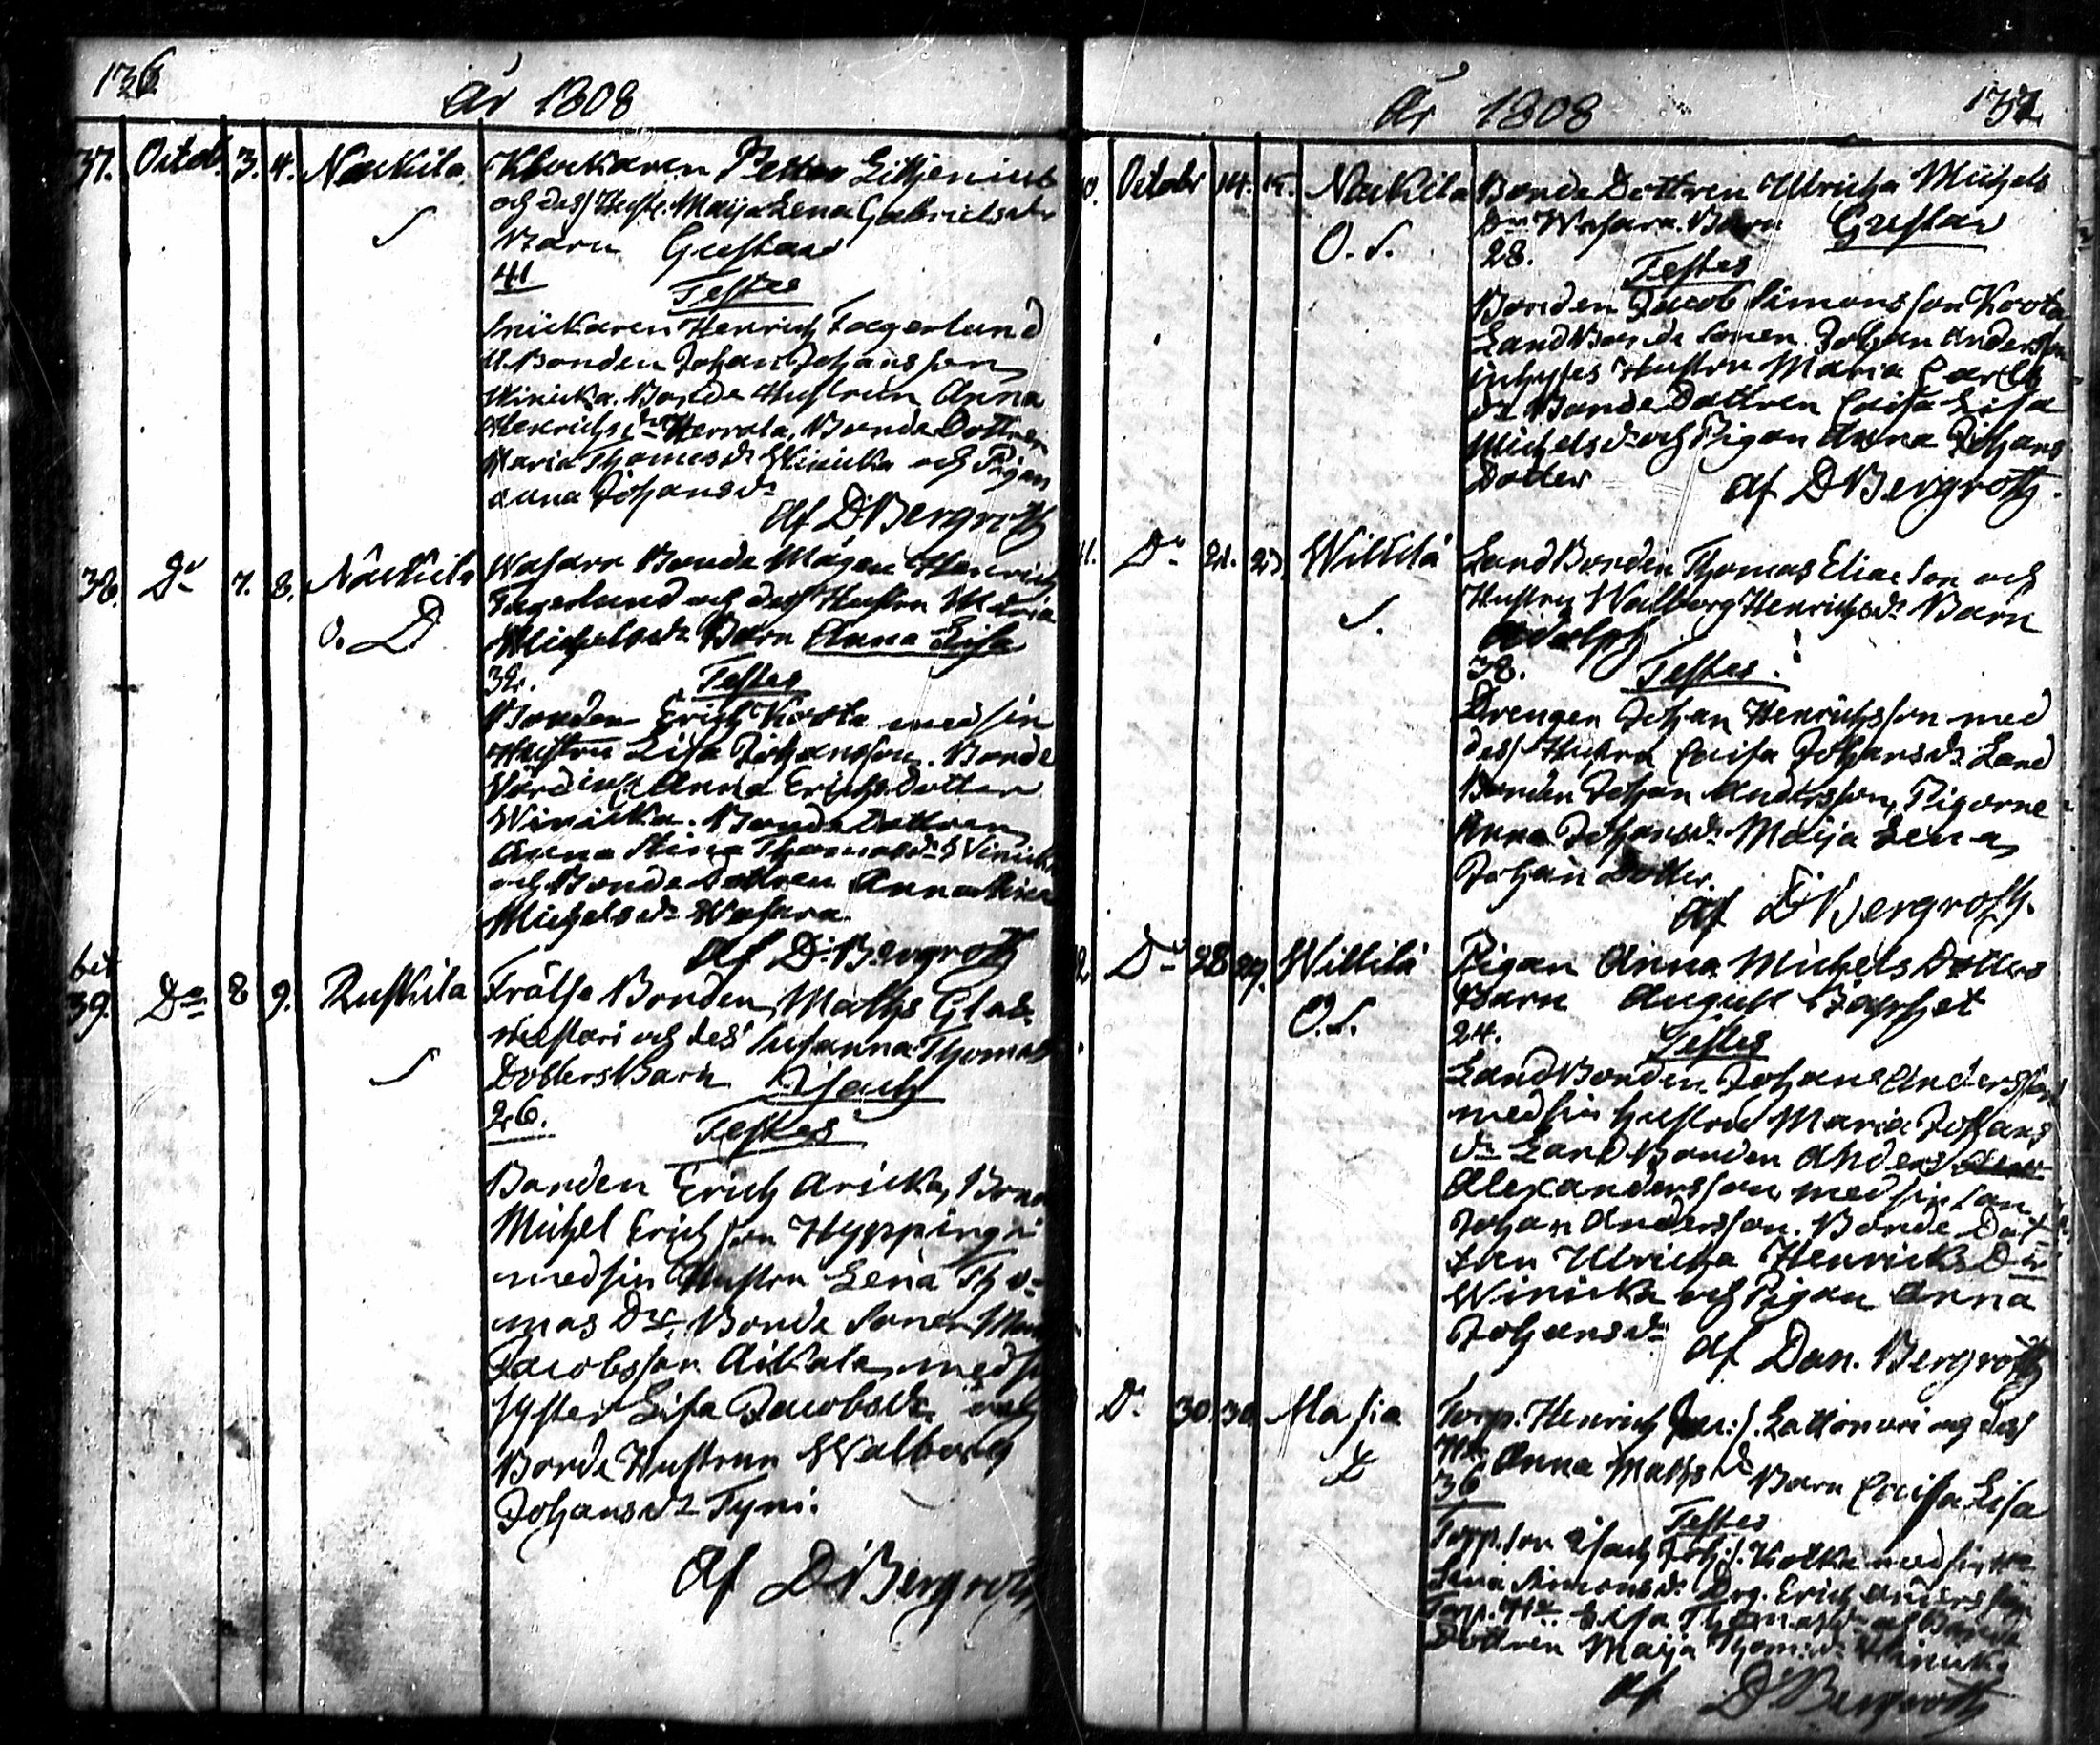 136
År 1808
37. Octob. 3. 4. Nackila. Klockaren Petter Liljenius
och dess Hustr. Maija Lena Gabrielsdr
Barn Gustav
41
Testes
Snickaren Henrich Fagerlund
U. Bonden Johan Johansson
Winicka. Bonde Hustrun Anna
Henrichsdr Herrala, Bonde Dottren
Maria Thomasdr Winicka och Pigan
Anna Johansdr
af D Bergroth
38. Do 7. 8. Nackila Wasara Bonde Mågen Henrich
Fagerlund och dess Hustru Maria
O. D Michelsdr Barn Anna Lisa
32.
Testes
Bonden Erich Koota med sin
Hustru Lisa Johansson. Bonde
Värdin Anna Erichs Dotter
Winicka. Bonde Dottren
Anna Stina Thomasdr Winicka
och Bonde Dottren Anna Stina
Michelsdr Wasara.
af D. Bergroth
39. Do 8 9. Ruskila Frälse Bonden Matths Glas
mestari och des Susanna Thomas
Dotters Barn Isach
26.
Testes
Bonden Erich Aricka, Bond
Michel Erichsson Hyppingi
med sin Hustru Lena Tho-
mas Dr, Bonde Sonen
Jacobsson Aikala med
syster Lisa Jacobsdr och
Bonde Hustrun Walborg
Johansdr Tyni.
af D Bergroth
År 1808 137
Octobr 14. 15. Nackila Bonde Dottren Ulricha Michels
Dr Wasara. Barn Gustav
O. S. 28.
Testes
Bonden Jacob Simonsson Koota
Land Bonde Sonen Johan Andersson
inhyses Hustru Maria Carls
dr Bonde Dottren Caisa Lisa
Michelsdr och Pigan Anna Johans
Dotter
af D Bergroth.
Do 22. 23. Willilä Land Bonden Thomas Eliasson och
Hustru Walborg Henrichsdr Barn
Adolph
38. Testes.
Drengen Johan Henrichsson med
dess Hustru Caisa Johansdr Land
Bonden Johan Andersson, Pigorne
Anna Johansdr Maija Lena
Johans Dotter.
af D Bergroth.
Do 28 29. Willilä Pigan Anna Michels Dotters
O. S. Barn August
24.
Testes
Land Bonden Johan Andersson
med sin hustru Maria Johans
dr Land Bonden Anders
Alexandersson med sin son
Johan Andersson. Bonde Dot-
tren Ulricha Henrichs Dr
Winicka och Pigan Anna
Johansdr
af Dan. Bergroth
Do 30. 30. Masia Torp. Henrich Lattomeri og dess
Hu Anna Mattsdr Barn Caisa Lisa
36
Testes
Torp. son Isach Joh:s. Kolkka med sin Hu
Lena Simonsdr Drg. Erich Andersson
Torp. Hu Lisa Thomasdr och Bonde
Dottren Maija Thom:dr Winicka
af D Bergroth